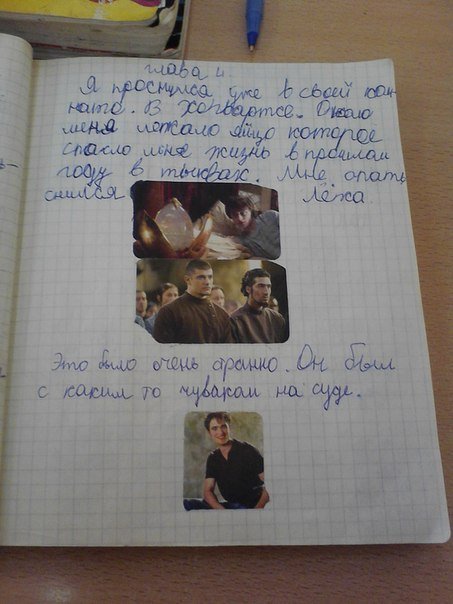 глава 4.
Я проснулся уже в своей ком-
нате. В Хогвартсе. Около
меня лежало яйцо которое
спасло мне жизнь в прошлом
году в тыквах. Мне опять
снился Лёха
Это было очень странно. Он был
с каким то чуваком на суде.